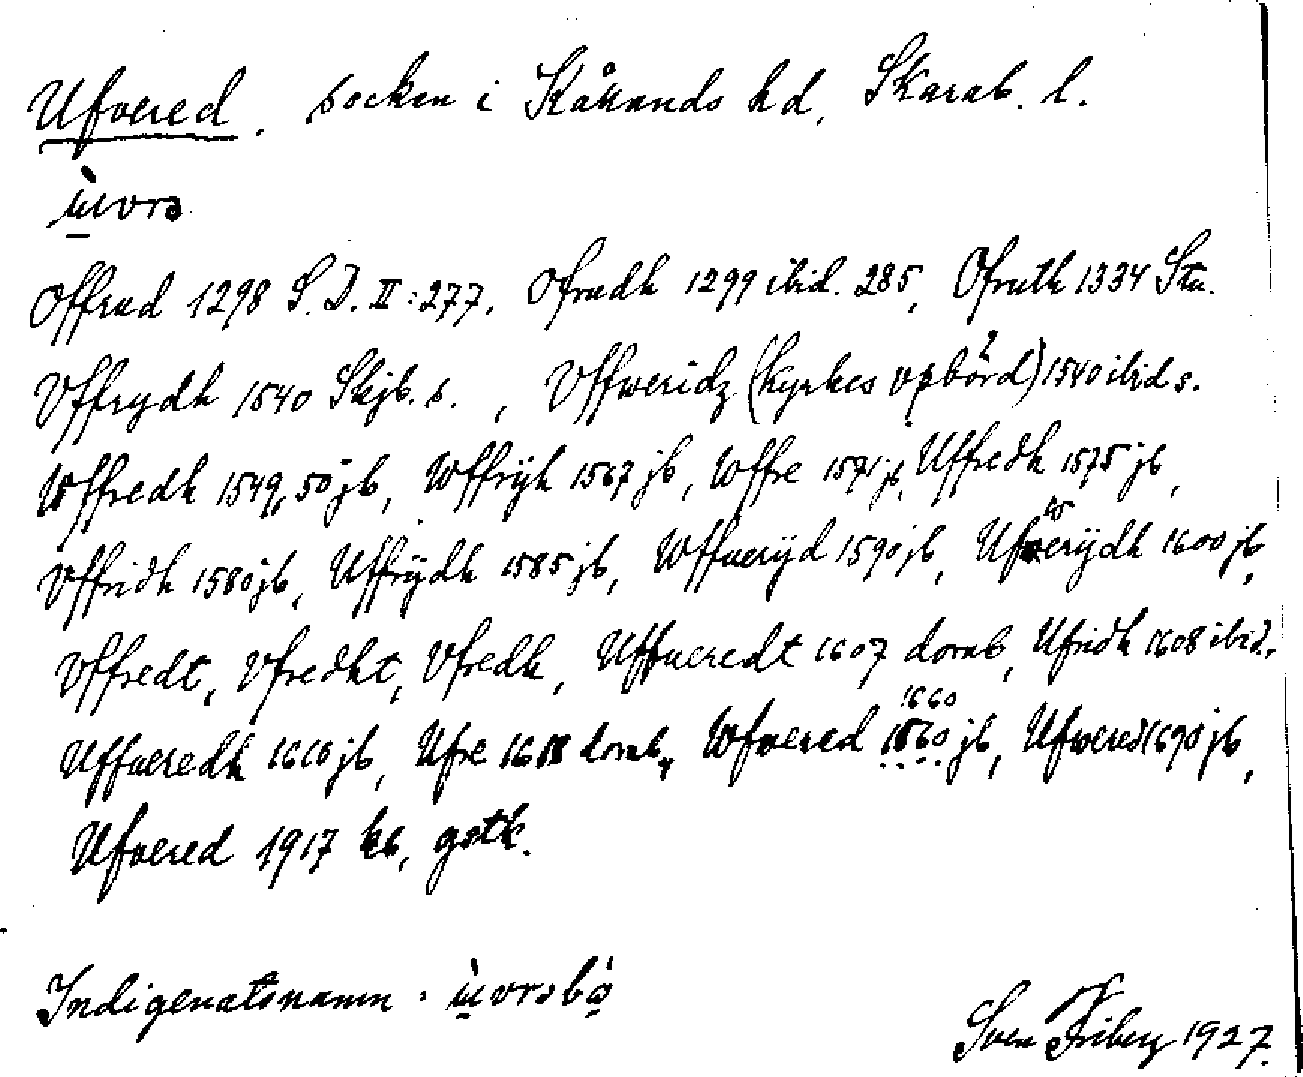 Ufvered. socken i Kåkands hd, Skarab. l.
ùvrə
Offrud 1298 S.D. II:277, Ofrudh 1299 ibid. 285, Ofruth 1334 Stu.
Vffrydh 1540 Skjb. s. , Vffweridz (kyrkes vpbörd) 1540 ibid s.
Wffredh 1549, 50 jb, Wffryh 1567 jb, Wffre 1571 jb, Uffredh 1575 jb,
Vffridh 1580 jb, Uffrÿdh 1585 jb, Wffueryd 1590 jb, Ufwerÿdh 1600 jb,
Vffredt, Vfredht, Vfredh, Uffueredt 1607 domb, Ufridh 1608 ibid.
Uffueredh 1610 jb, Ufre 1618 domb, Wfvered 1660 jb, Ufwered 1690 jb,
Ufvered 1917 kb, gstk.
Indigenatsnamn: ùvrsbo
Sven Friberg 1927.